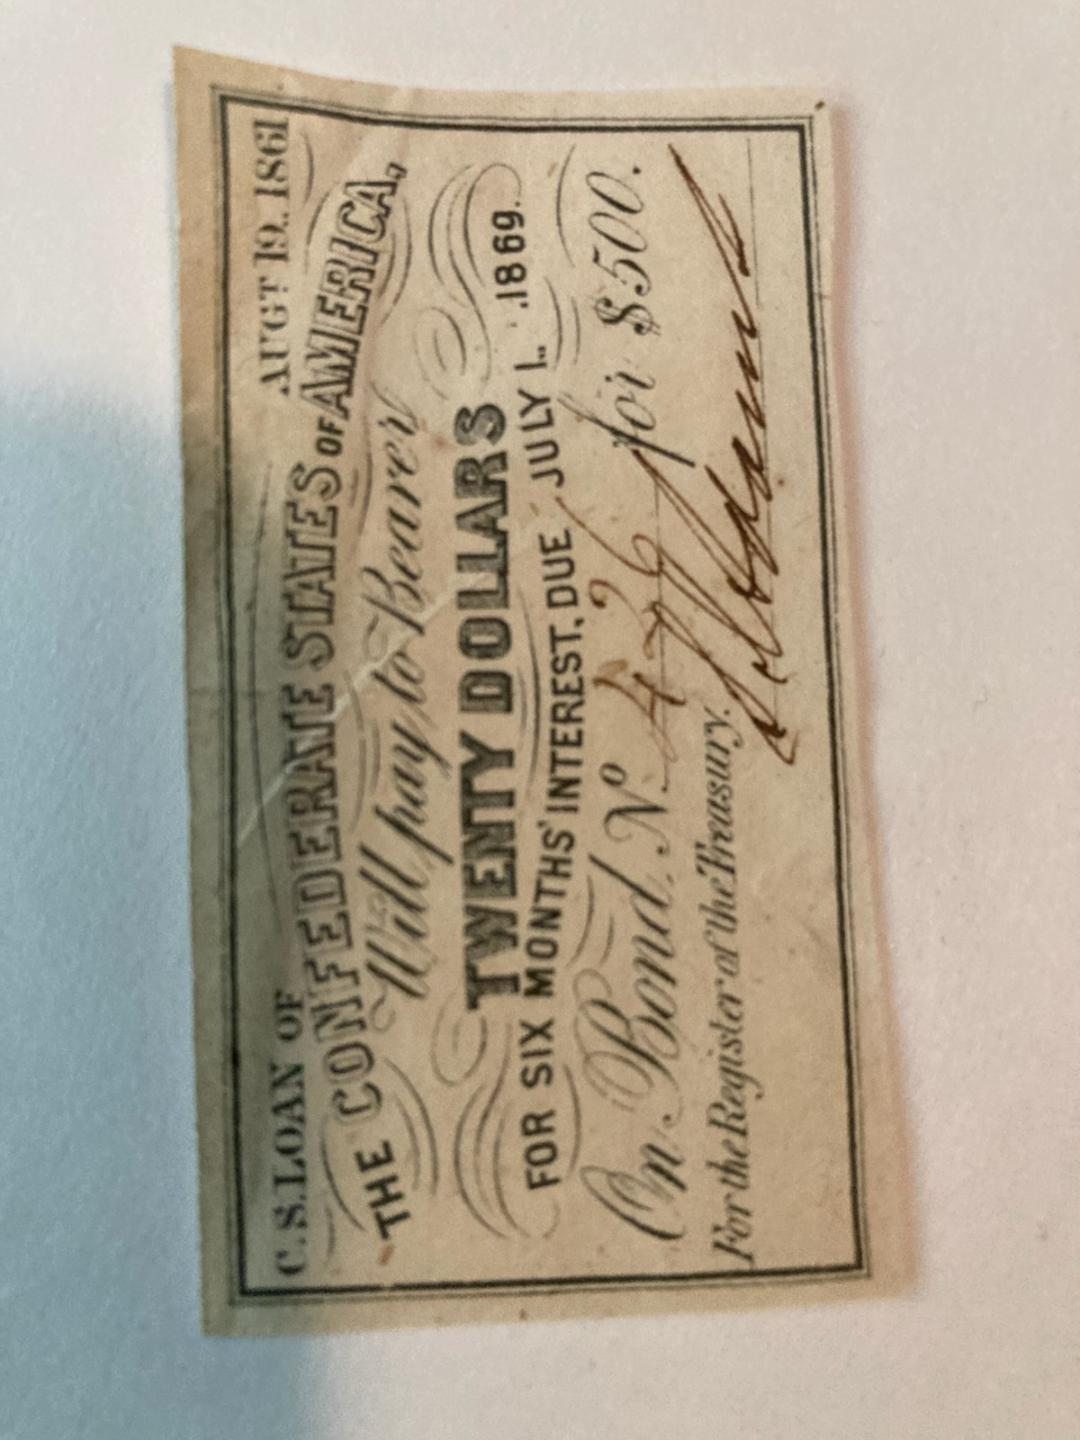 C. S. LOAN OF AUGT. 19.. 1861
THE CONFEDERATE STATES OF AMERICA,
Will pay to Bearer
TWENTY DOLLARS
FOR SIX MONTHS' INTEREST, DUE JULY 1.. 1869..
On Bond. No for $500.
For the Register of the Treasury.